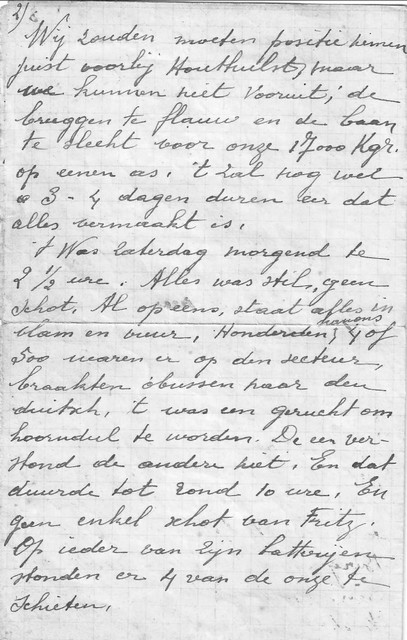 2/
Wij zouden moeten positie nemen
juist voorbij Houthulst, maar
we kunnen niet vooruit; de
bruggen te flauw en de baan
te slecht voor onze 17000 Kgr.
op eenen as. 't zal nog wel
a 3 - 4 dagen duren eer dat
alles vermaakt is.
't Was zaterdag morgend te
2 1/2 ure. Alles was stil, geen
schot. Al op eens, staat alles in
vlam en vuur. Honderden kanons, 4 of
500 waren er op den secteur,
braakten obussen naar den
duitsch, 't was een gerucht om
hoorndul te worden. De een ver-
stond de andere niet. En dat
duurde tot rond 10 ure. En
geen enkel schot van Fritz.
Op ieder van zijn batterijen
stonden er 4 van de onze te
schieten.